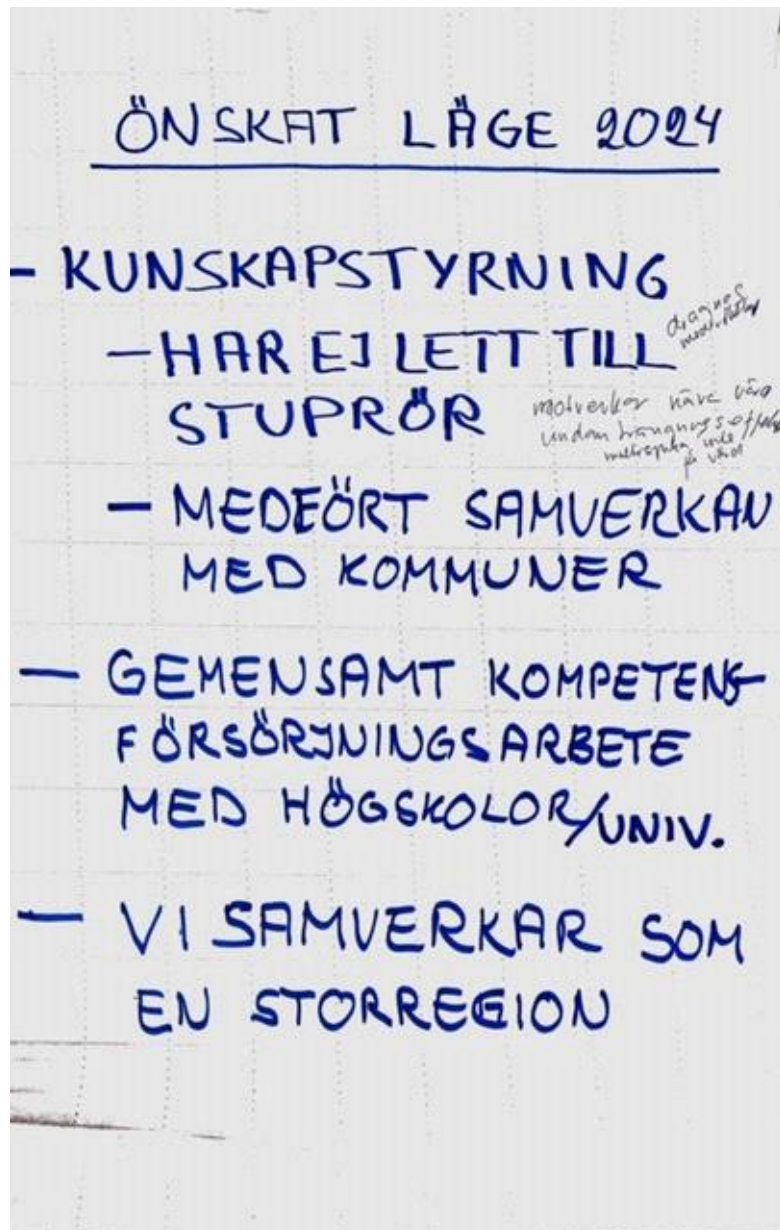 ÖNSKAT LÄGE 2024
- KUNSKAPSTYRNING
- HAR EJ LETT TILL
STUPRÖR
diagnos
motverkar nära vård
undanträngningseffekter
på vård
- MEDFÖRT SAMVERKAN
MED KOMMUNER
- GEMENSAMT KOMPETENS-
FÖRSÖRJNINGSARBETE
MED HÖGSKOLOR/UNIV.
- VI SAMVERKAR SOM
EN STORREGION